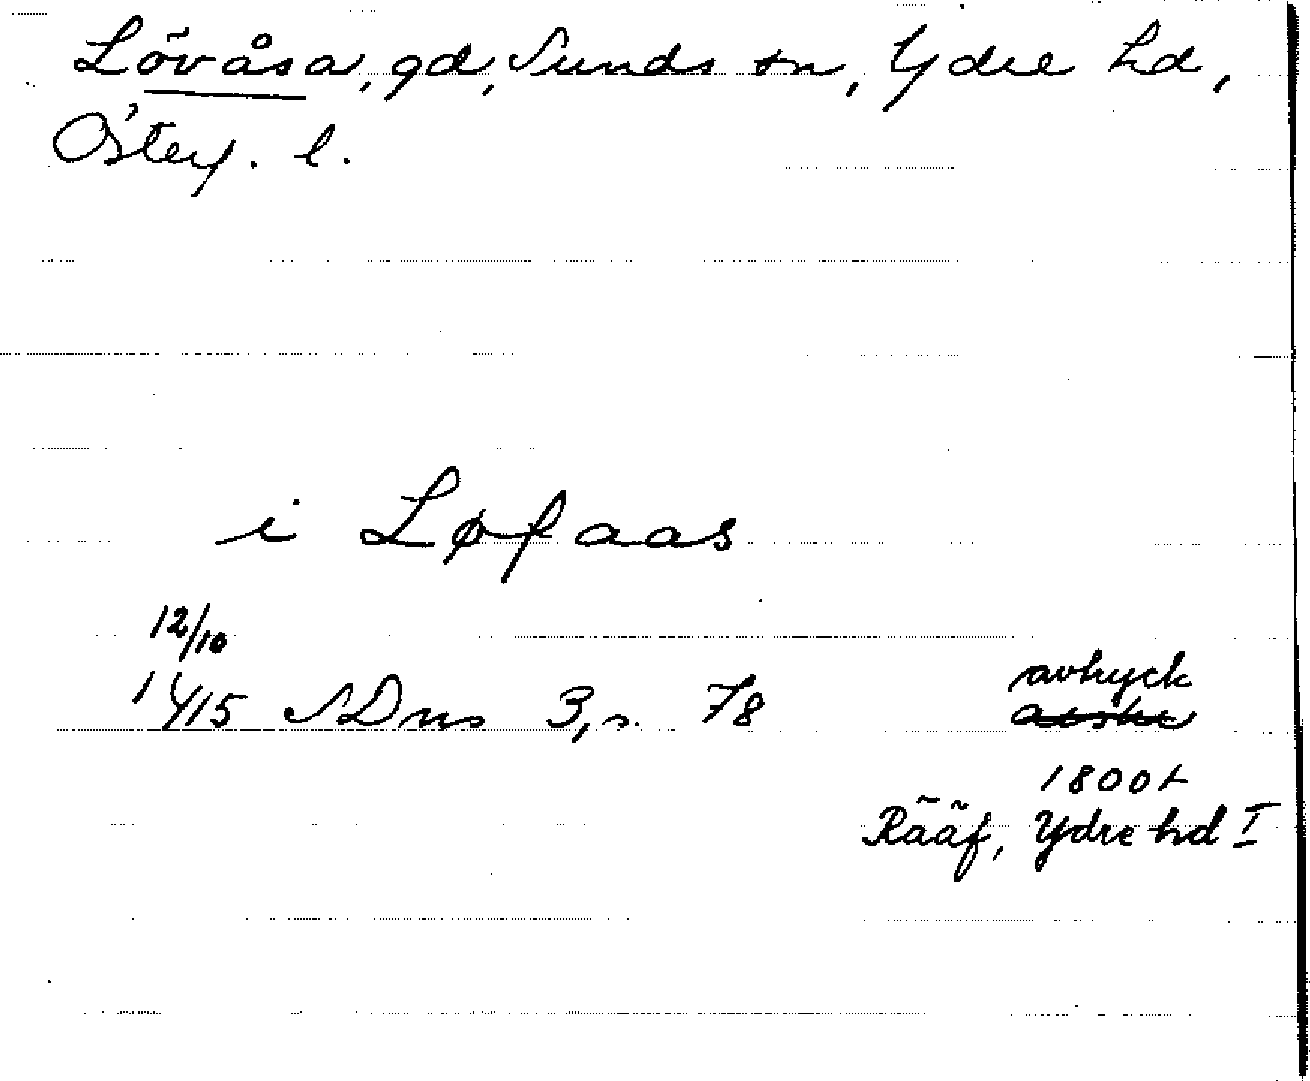 Lövåsa, gd, Sunds sn, Ydre hd,
Österg. l.
i Løfaas
12/10
1415 SDns 3, s. 78
avtryck
1800t
Rääf, Ydre hd I